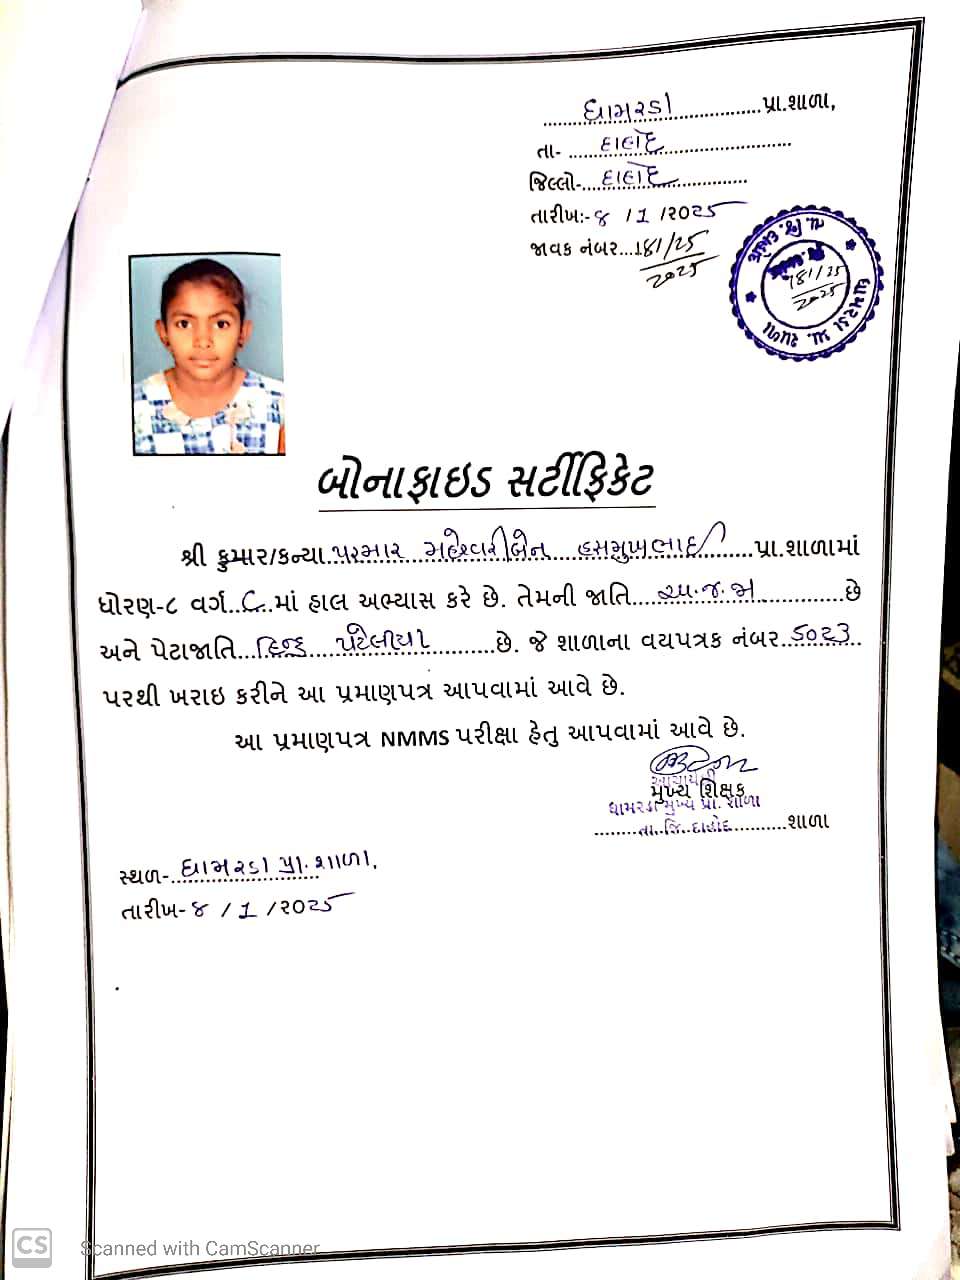 ધામરડા પ્રા.શાળા,
તા- દાહોદ
જિલ્લો- દાહોદ
તારીખ:- ૪ / 1 / ૨૦૨૫
જાવક નંબર... 181/25
2025
ધામરડા પ્રા. શાળા
181/25
2025
બોનાફાઇડ સર્ટીફિકેટ
શ્રી કુમાર/કન્યા પરમાર મહેશ્વરીબેન હસમુખભાઈ પ્રા.શાળામાં
ધોરણ-૮ વર્ગ..C..માં હાલ અભ્યાસ કરે છે. તેમની જાતિ અ.જ.જા છે
અને પેટાજાતિ હિન્દુ પટેલીયા છે. જે શાળાના વયપત્રક નંબર ૬૦૨૩
પરથી ખરાઇ કરીને આ પ્રમાણપત્ર આપવામાં આવે છે.
આ પ્રમાણપત્ર NMMS પરીક્ષા હેતુ આપવામાં આવે છે.
આચાર્યશ્રી
મુખ્ય શિક્ષક
ધામરડા મુખ્ય પ્રા. શાળા
તા.જિ.દાહોદ શાળા
સ્થળ- ધામરડા પ્રા. શાળા,
તારીખ- ૪ / 1 / ૨૦૨૫
CS Scanned with CamScanner